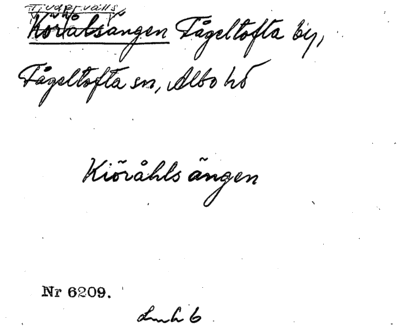 Körålsängen Fågeltofta by,
Fågeltofta sn, Albo hd
Kiöråhls ängen
Nr 6209.